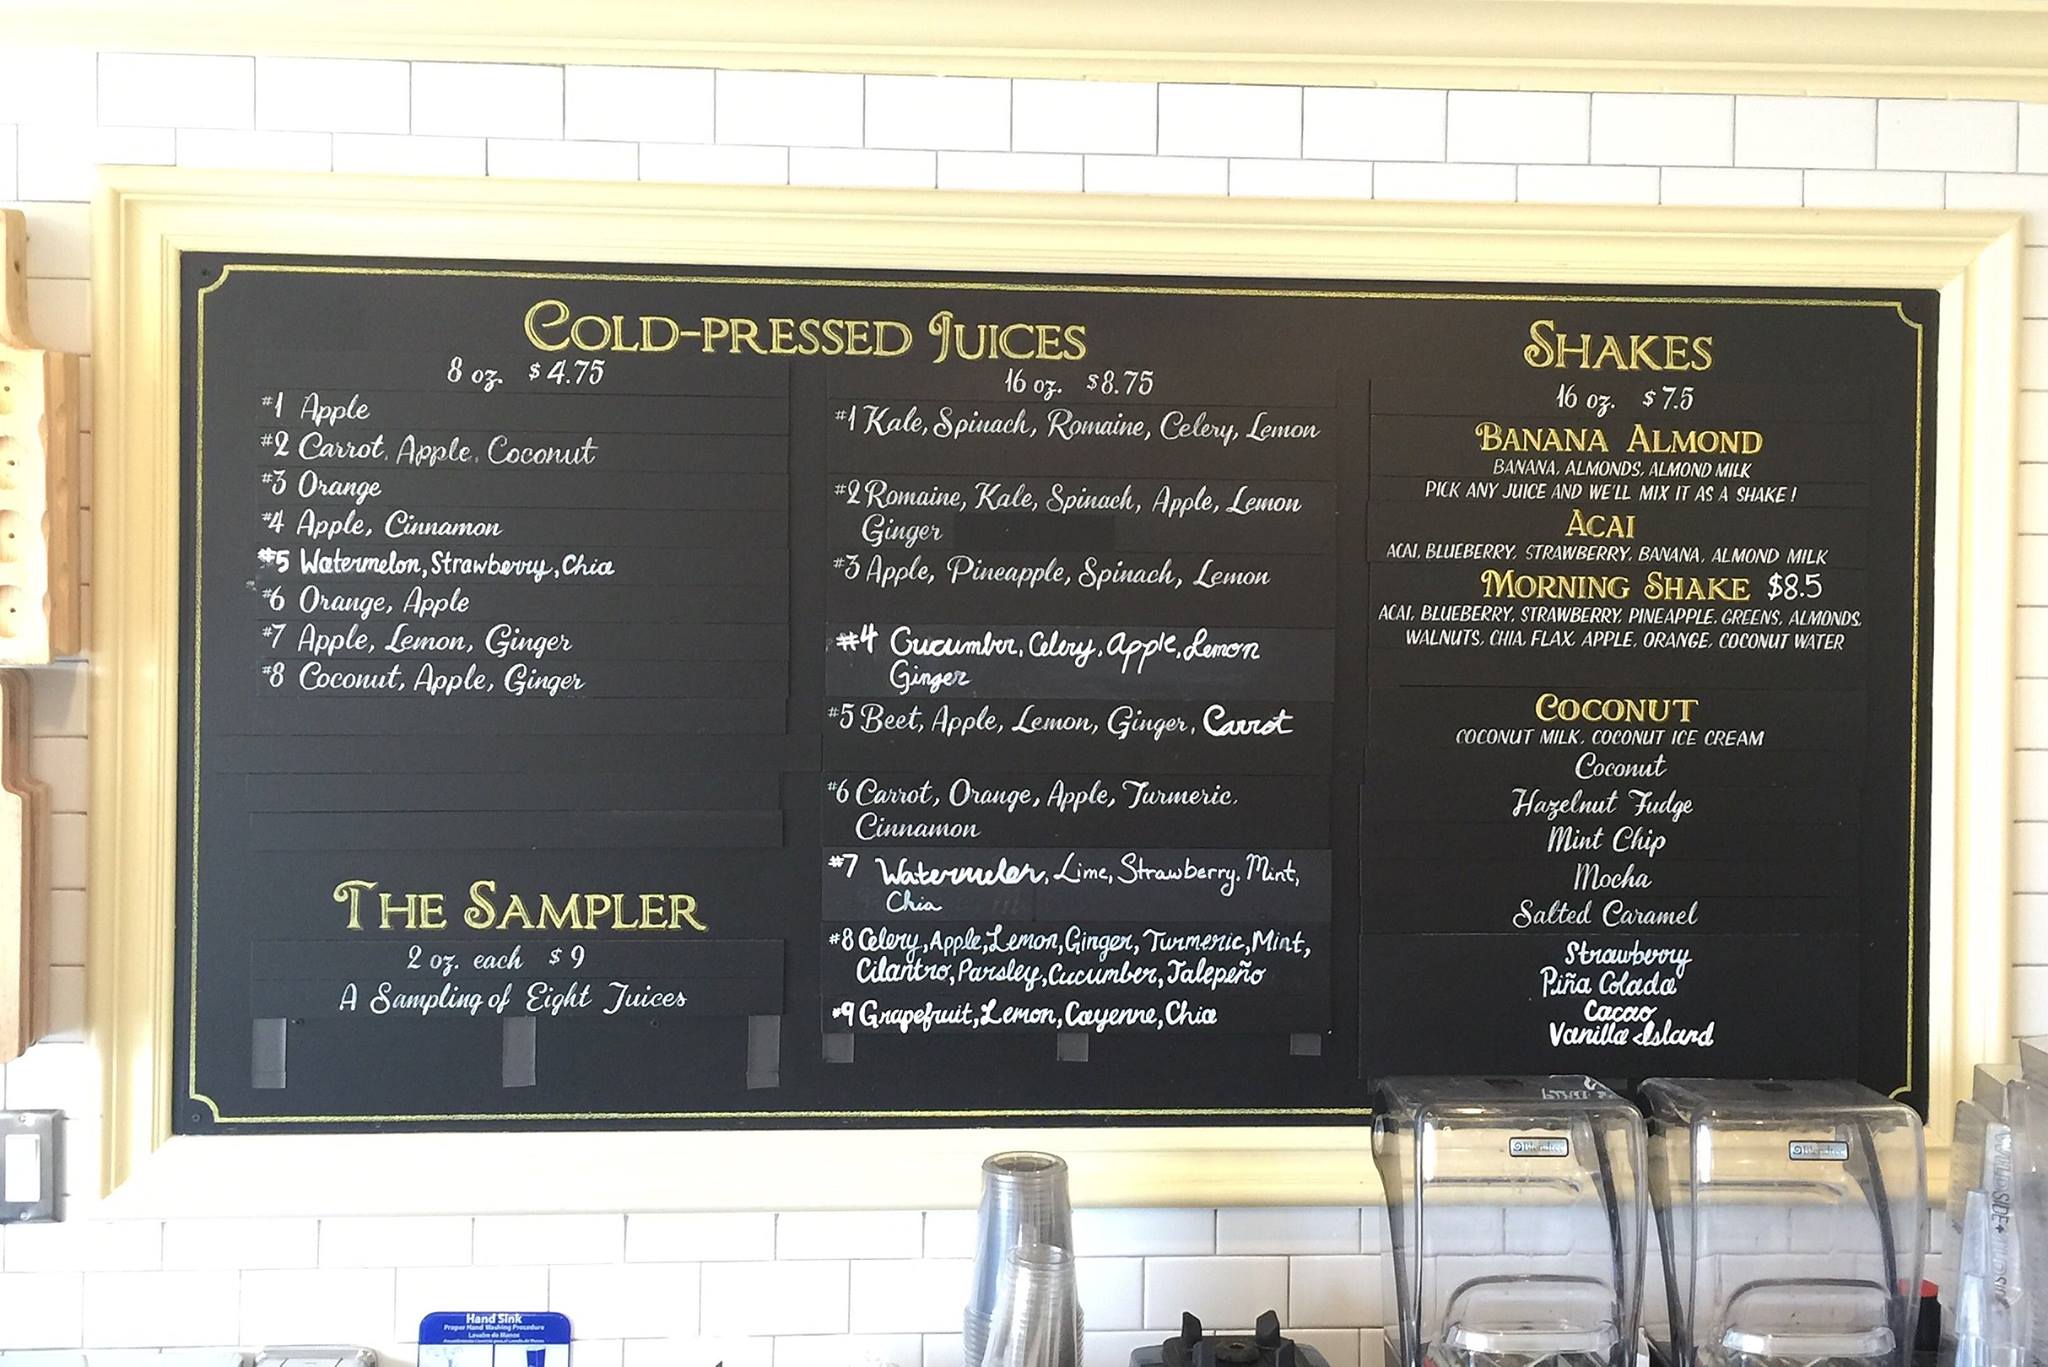 COLD-PRESSED JUICES
8 oz. $4.75
#1 Apple
#2 Carrot, Apple, Coconut
#3 Orange
#4 Apple, Cinnamon
#5 Watermelon, Strawberry, Chia
#6 Orange, Apple
#7 Apple, Lemon, Ginger
#8 Coconut, Apple, Ginger
THE SAMPLER
2 oz. each $9
A Sampling of Eight Juices
16 oz. $8.75
#1 Kale, Spinach, Romaine, Celery, Lemon
#2 Romaine, Kale, Spinach, Apple, Lemon
Ginger
#3 Apple, Pineapple, Spinach, Lemon
#4 Cucumber, Celery, Apple, Lemon
Ginger
#5 Beet, Apple, Lemon, Ginger, Carrot
#6 Carrot, Orange, Apple, Turmeric,
Cinnamon
#7 Watermelon, Lime, Strawberry, Mint,
Chia
#8 Celery, Apple, Lemon, Ginger, Turmeric, Mint,
Cilantro, Parsley, Cucumber, Jalepeño
#9 Grapefruit, Lemon, Cayenne, Chia
SHAKES
16 oz. $7.5
BANANA ALMOND
BANANA, ALMONDS, ALMOND MILK
PICK ANY JUICE AND WE'LL MIX IT AS A SHAKE!
ACAI
ACAI, BLUEBERRY, STRAWBERRY, BANANA, ALMOND MILK
MORNING SHAKE $8.5
ACAI, BLUEBERRY, STRAWBERRY, PINEAPPLE, GREENS, ALMONDS,
WALNUTS, CHIA, FLAX, APPLE, ORANGE, COCONUT WATER
COCONUT
COCONUT MILK, COCONUT ICE CREAM
Coconut
Hazelnut Fudge
Mint Chip
Mocha
Salted Caramel
Strawberry
Piña Colada
Cacao
Vanilla Island
Blendtec
Blendtec
WILDSIDE+
Hand Sink
Proper Hand Washing Procedure
Lavabo de Manos